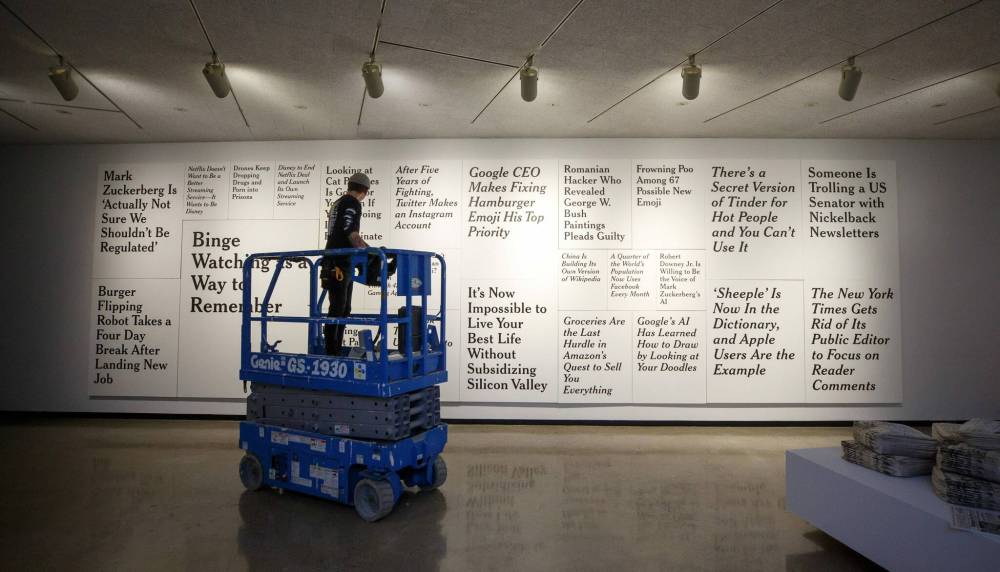 Mark
Zuckerberg Is
'Actually Not
Sure We
Shouldn't Be
Regulated'
Burger
Flipping
Robot Takes a
Four Day
Break After
Landing New
Job
Netflix Doesn't
Want to Be a
Better
Streaming
Service—It
Wants to Be
Disney
Drones Keep
Dropping
Drugs and
Porn into
Prisons
Disney to End
Netflix Deal
and Launch
Its Own
Streaming
Service
Binge
Watching Is a
Way to
Remember
Looking at
Cat
Is
After Five
Years of
Fighting,
Twitter Makes
an Instagram
Account
Google CEO
Makes Fixing
Hamburger
Emoji His Top
Priority
It's Now
Impossible to
Live Your
Best Life
Without
Subsidizing
Silicon Valley
Romanian
Hacker Who
Revealed
George W.
Bush
Paintings
Pleads Guilty
Frowning Poo
Among 67
Possible New
Emoji
China Is
Building Its
Own Version
of Wikipedia
A Quarter of
the World's
Population
Now Uses
Facebook
Every Month
Robert
Downey Jr. Is
Willing to Be
the Voice of
Mark
Zuckerberg's
AI
Groceries Are
the Last
Hurdle in
Amazon's
Quest to Sell
You
Everything
Google's AI
Has Learned
How to Draw
by Looking at
Your Doodles
There's a
Secret Version
of Tinder for
Hot People
and You Can't
Use It
'Sheeple' Is
Now In the
Dictionary,
and Apple
Users Are the
Example
Someone Is
Trolling a US
Senator with
Nickelback
Newsletters
The New York
Times Gets
Rid of Its
Public Editor
to Focus on
Reader
Comments
Genie GS-1930